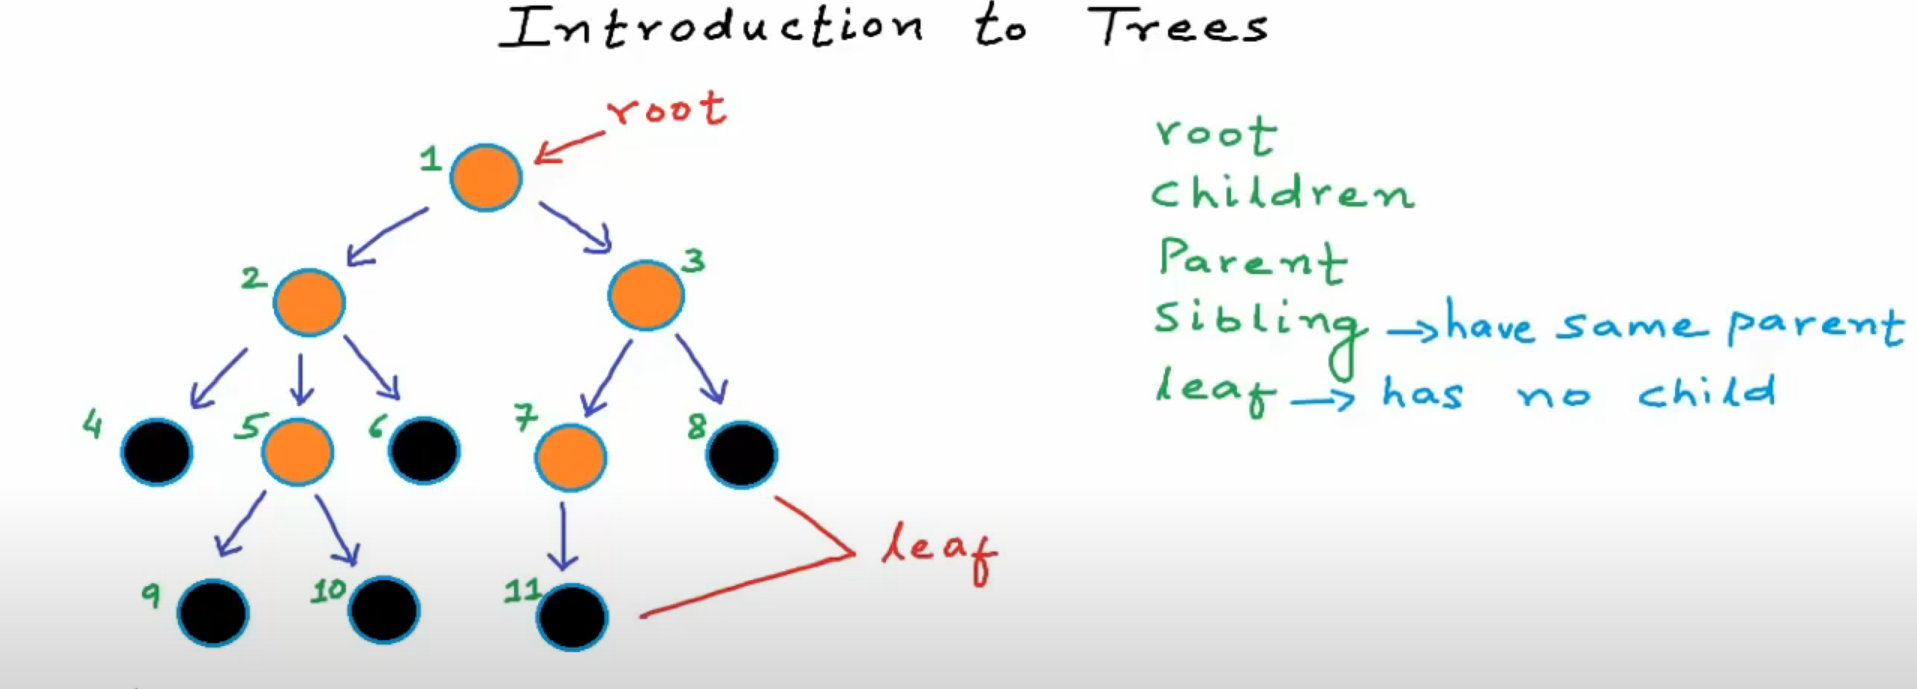 Introduction to Trees
root
1
2
3
4
5
6
7
8
9
10
11
leaf
root
Children
Parent
Sibling → have same parent
leaf → has no child